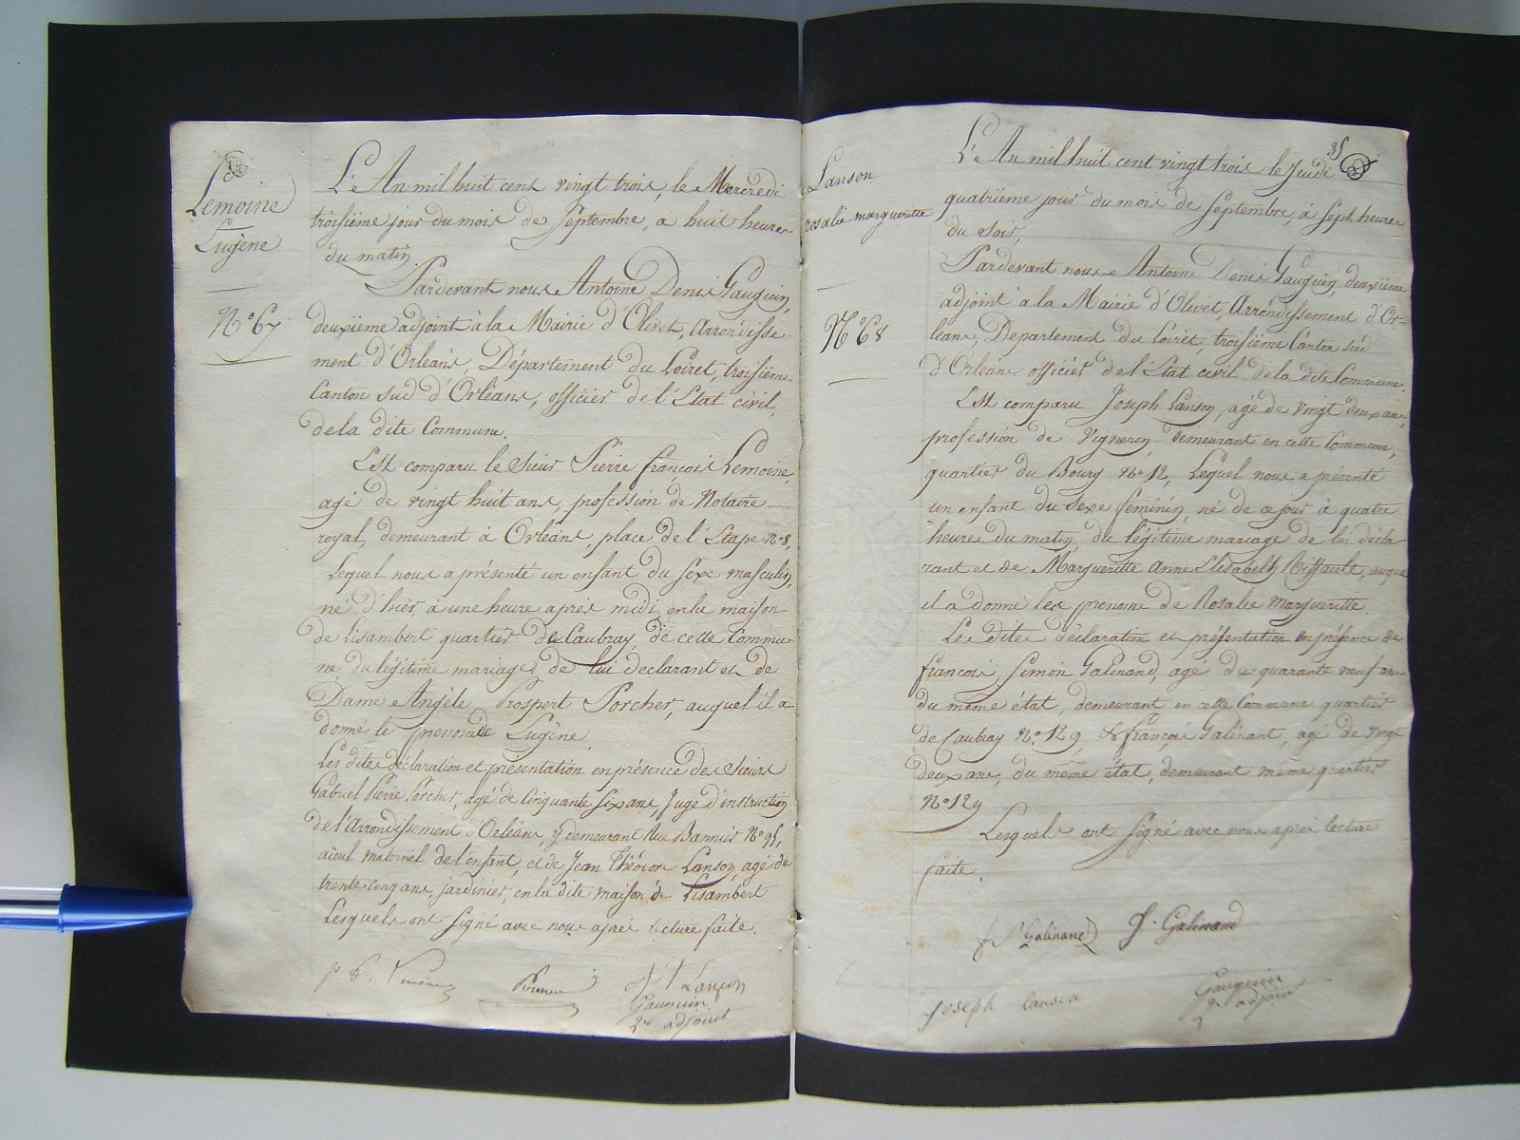 Lemoine
Eugène
N° 67
L'An mil huit cent vingt trois, le Mercredi
troisième jour du mois de Septembre, à huit heures
du matin.
Pardevant nous Antoine Denis Gauguin,
deuxième adjoint à la Mairie d'Olivet, Arrondisse-
ment d'Orléans, Département du Loiret, troisième
Canton sud d'Orléans, officier de l'Etat civil,
de la dite Commune.
Est comparu le Sieur Pierre françois Lemoine,
agé de vingt huit ans, profession de Notaire
royal, demeurant à Orléans, place de l'Etape n° 8,
Lequel nous a présenté un enfant du sexe masculin,
né d'hier, à une heure après midi, en la maison
de Lisambert quartier de Caubray, de cette Commu-
ne du légitime mariage de lui déclarant et de
Dame Angèle Prospert Porcher, auquel il a
donné le prenom de Eugène.
Les dites déclaration et présentation en présence des Sieurs
Gabriel Pierre Porcher, agé de Cinquante six ans, Juge d'instruction
de l'Arrondissement d'Orléans, y demeurant Rue Bannier N° 95,
aïeul maternel de l'enfant, et de Jean Théodore Lanson, agé de
trente cinq ans, jardinier, en la dite maison de Lisambert
Lesquels ont signé avec nous après lecture faite.
Porcher J T Lanson
Gauguin
2e adjoint
35
Lanson
rosalie margueritte
N° 68
L'An mil huit cent vingt trois le Jeudi
quatrième jour du mois de Septembre, à sept heures
du soir,
Pardevant nous Antoine Denis Gauguin, deuxième
adjoint à la Mairie d'Olivet, Arrondissement d'Or-
léans, Departement du Loiret, troisième Canton sud
d'Orléans officier de l'Etat civil de la dite Commune.
Est comparu Joseph Lanson, agé de vingt deux ans,
profession de Vigneron demeurant en cette Commune,
quartier du Bourg N° 12, Lequel nous a présenté
un enfant du Sexe féminin, né de ce jour à quatre
heures du matin, du légitime mariage de lui décla-
rant et de Margueritte Anne Elisabeth Riffault, auquel
il a donné les prenoms de Rosalie Margueritte.
Les dites déclaration et présentation en présence de
françois Simon Galinand, agé de quarante neuf ans
du même état, demeurant en cette Commune quartier
de Caubray N° 129, & françois Galinant, agé de vingt
deux ans, du même état, demeurant même quartier
N° 129
Lesquels ont signé avec nous après lecture
faite.
f S Galinand f. Galinand
Joseph Lanson
Gauguin
2e adjoint